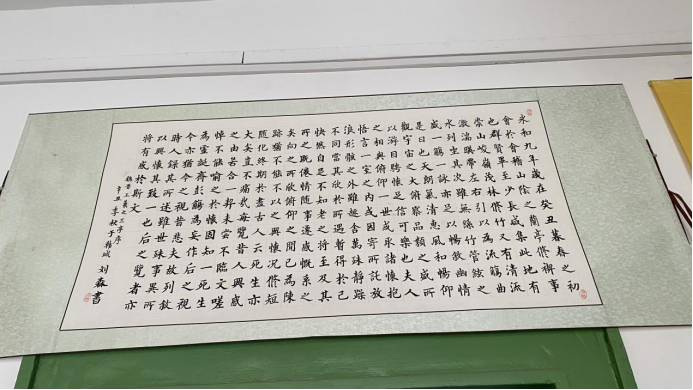 永和九年歲在癸丑暮春之初
會於會稽山陰之蘭亭修禊事
也群賢畢至少長咸集此地有
崇山峻嶺茂林修竹又有清流
激湍暎帶左右引以為流觴曲
水列坐其次雖無絲竹管絃之
盛一觴一詠亦足以暢敘幽情
是日也天朗氣清惠風和暢仰
觀宇宙之大俯察品類之盛所
以游目騁懷足信可樂也夫人
之相與俯仰一世或取諸懷抱
悟言一室之內或因寄所託放
浪形骸之外雖趣舍萬殊靜躁
不同當其欣於所遇暫得於己
快然自足不知老之將至及其
所之既倦情隨事遷感慨係之
矣向之所欣俯仰之間已為陳
跡猶不能不以之興懷況修短
隨化終期於盡古人云死生亦
大矣豈不痛哉每覽昔人興感
之由若合一契未嘗不臨文嗟
悼不能喻之於懷固知一死生
為虛誕齊彭殤為妄作后之視
今亦猶今之視昔悲夫故列敘
時人錄其所述雖世殊事異所
以興懷其致一也后之覽者亦
將有感於斯文
王羲之
序
辛丑季秋于韓城 刘淼書